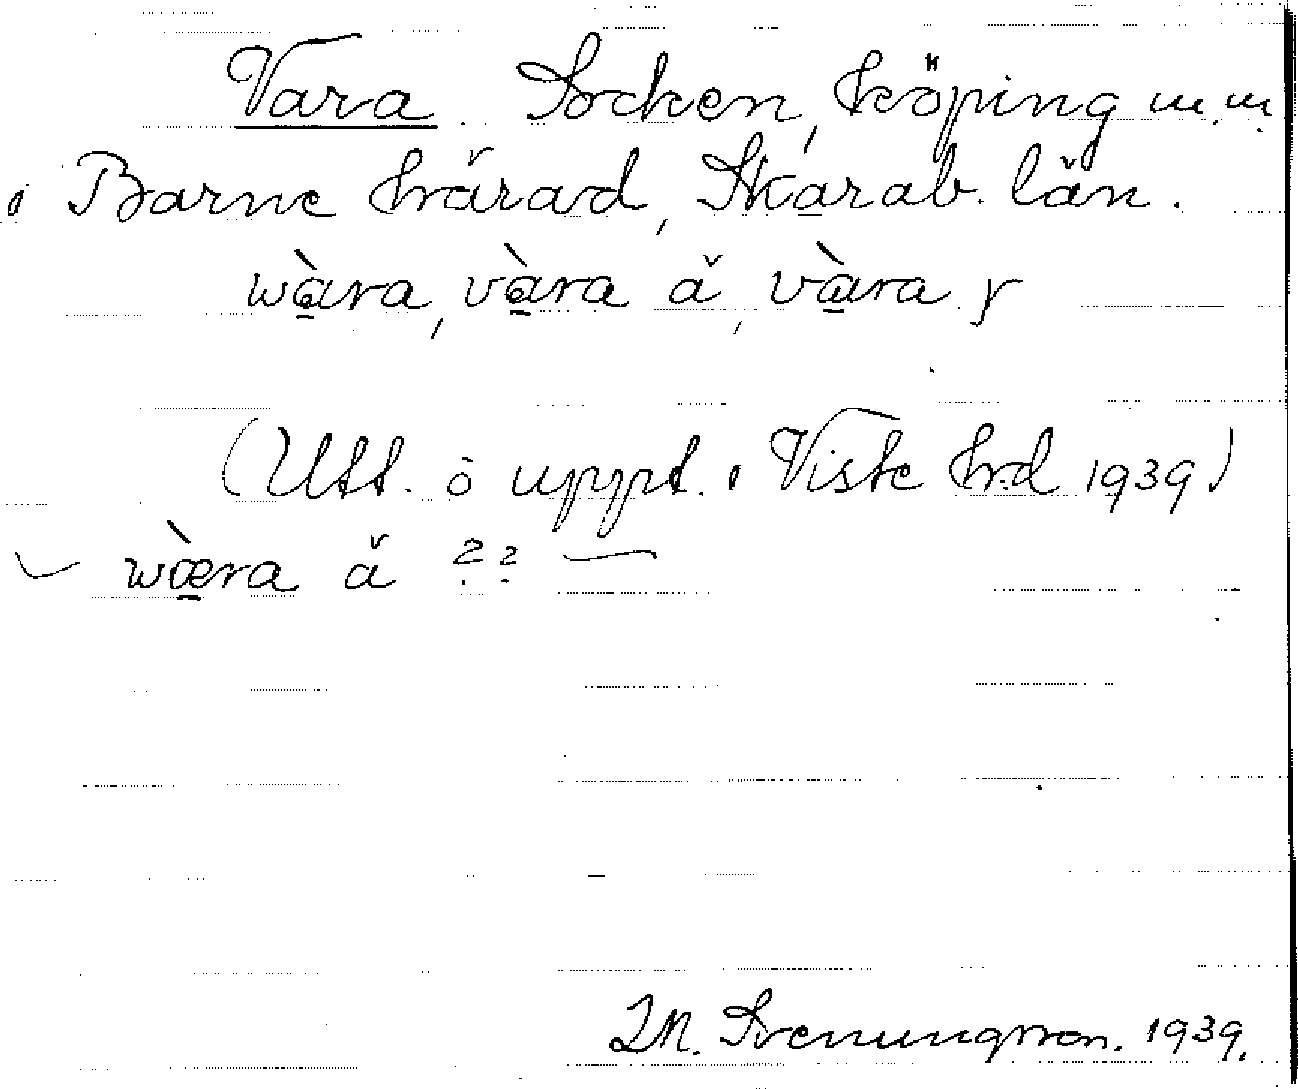 Vara. Socken, köping m.m.
i Barne härad, Skarab. län.
wàra, vàra ä, vàra y
(Utt. o uppt. i Viste hrd 1939)
wæ̀ra ä ??
Svenungsson. 1939.